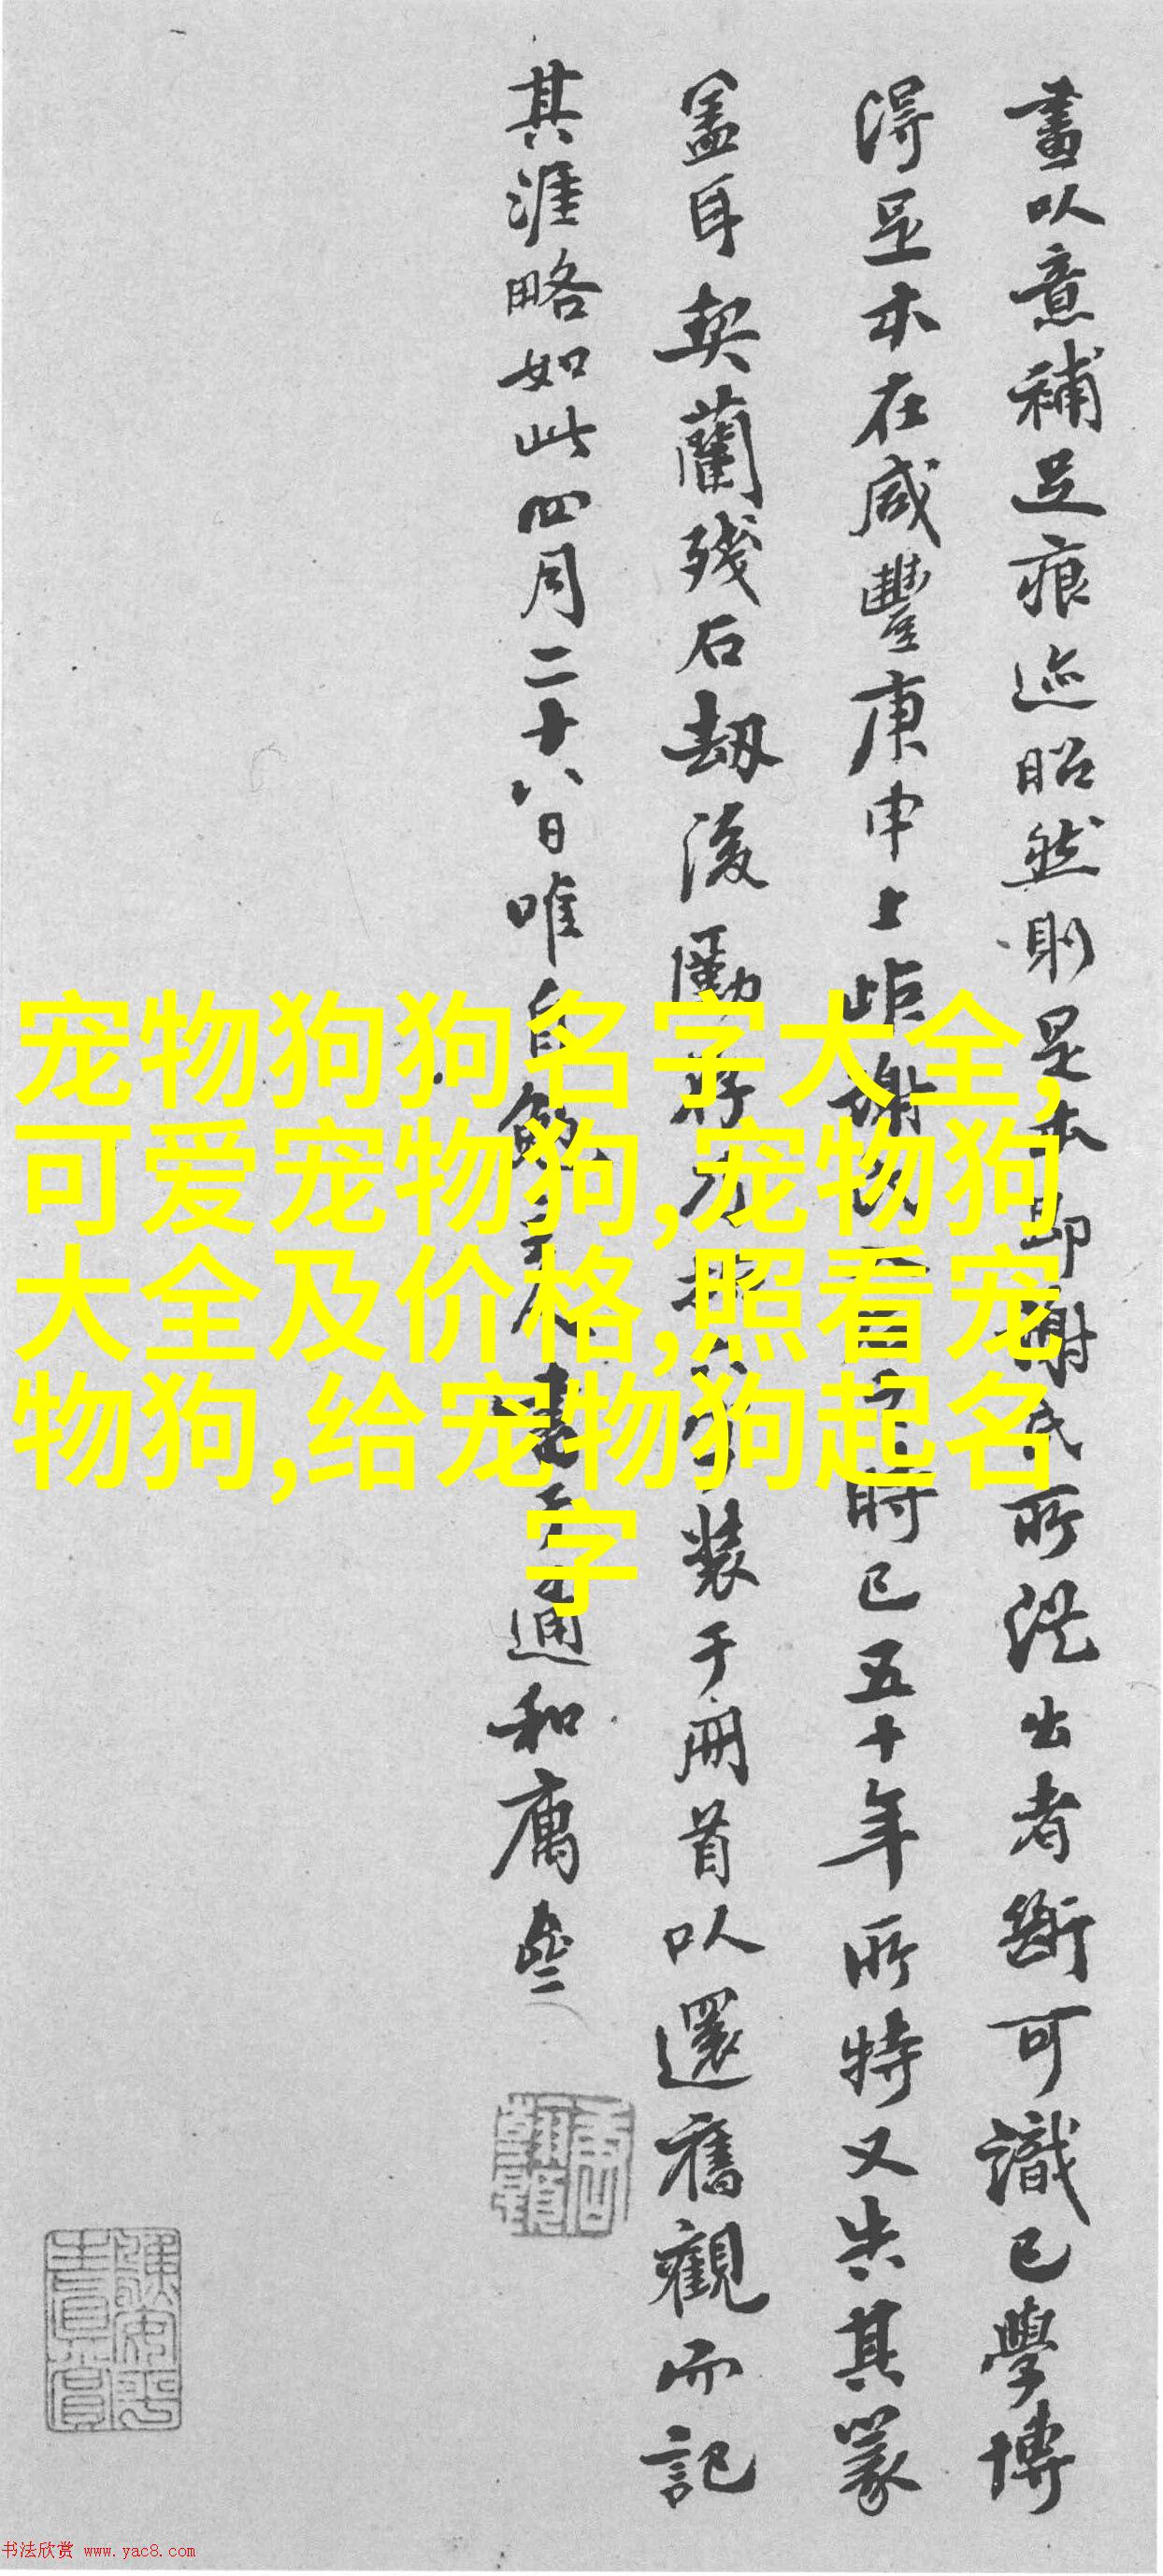 畫以意補足痕迹昭然則是本即謝氏所從出者斷可識已學博
得足本在咸豐庚申上距謝時已五十年所特又失其篆
盖耳契蘭殘石劫後裝于冊首以還舊觀而記
其涯略如此四月二十八日唯自書于通和
宠物狗狗名字大全,
可爱宠物狗,宠物狗
大全及价格,照看宠
物狗,给宠物狗起名
字
书法欣赏 www.yac8.com